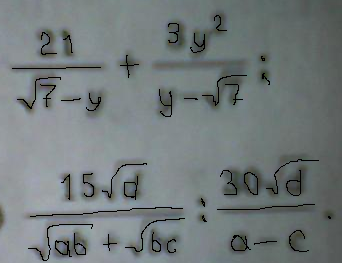 21/(√7 − y) + 3y²/(y − √7) ;
15√d/(√ab + √bc) : 30√d/(a − c) .